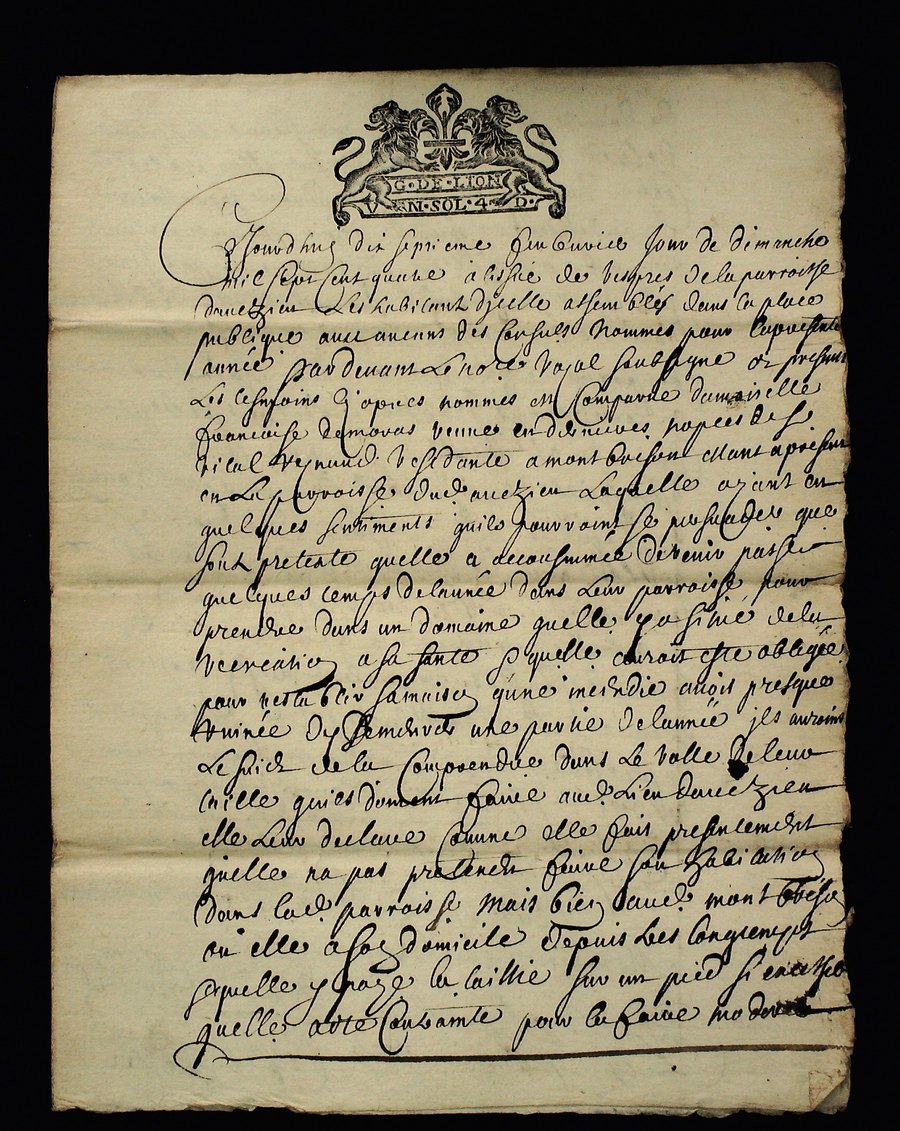 G·DE·LION
V N·SOL·4 D·
Aujourdhuy dix septieme feubvrier Jour de dimanche
mil sept cent quatre a lissüe de vespres de la parroisse
dauezieu Les habitants dycelle assemblés dans la place
publique aux auant des Consuls Nommes pour lapresente
année Pardevant Le no.re royal soubsigne et presents
Les tesmoins Cy apres nommes est Comparüe damoiselle
francoise demoras veuue en dernieres nopces de Sr
vital reynaud residante a montbrison estant apresent
en La parroisse dud. auezieu Laquelle ayant eu
quelques sentiments quils pourroint se persuader que
soubs pretexte quelle a accoustumée de venir passer
quelques temps delannée dans Leur parroisse pour
prendre dans un domaine quelle y a situé de la
recreation a sa santé & quelle auroit esté obligée
pour restablir sa maison qune incendie auoit presque
ruinée dy demeurer une partie delannée jls auroint
Le suiet de la Comprendre dans Le rolle de leur
taille quils doiuent faire aud. Lieu dauezieu
elle Leur declare Comme elle fait presentement
quelle na pas pretendu faire son habitation
dans lad. parroisse mais bien aud. montbrison
ou elle a son domicile depuis Les longtempt
& quelle y paye la taillie sur un pied si excessif
quelle a esté Contrainte pour la faire moderer